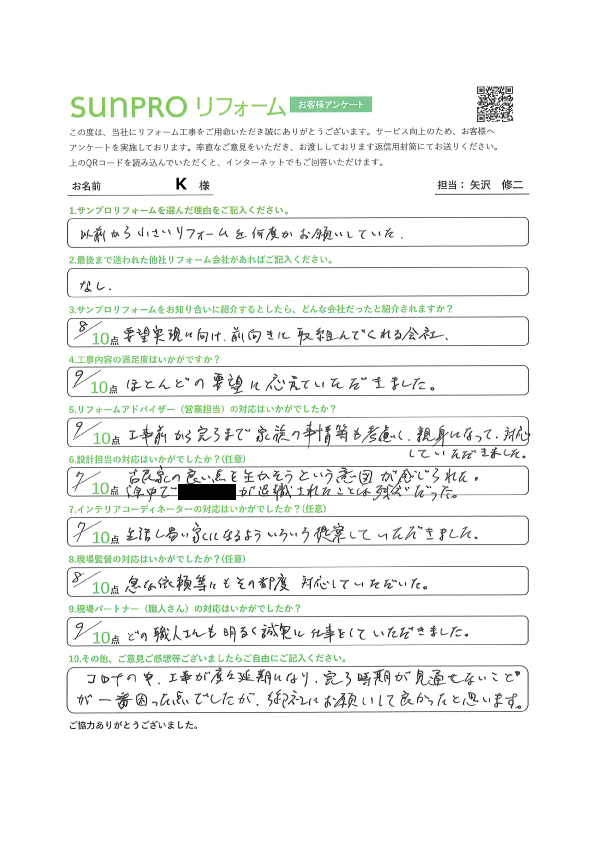 SUNPRO リフォーム お客様アンケート
この度は、当社にリフォーム工事をご用命いただき誠にありがとうございます。サービス向上のため、お客様へ
アンケートを実施しております。率直なご意見をいただき、お渡ししております返信用封筒にてお送りください。
上のQRコードを読み込んでいただくと、インターネットでもご回答いただけます。
お名前 K 様 担当：矢沢 修二
1.サンプロリフォームを選んだ理由をご記入ください。
以前から小さいリフォームを何度かお願いしていた.
2.最後まで迷われた他社リフォーム会社があればご記入ください。
なし.
3.サンプロリフォームをお知り合いに紹介するとしたら、どんな会社だったと紹介されますか？
8/10点 要望実現に向け、前向きに取組んでくれる会社、
4.工事内容の満足度はいかがですか？
9/10点 ほとんどの要望に応えていただきました。
5.リフォームアドバイザー（営業担当）の対応はいかがでしたか？
9/10点 工事前から完了まで家族の事情等も考慮し、親身になって、対応
していただきました。
6.設計担当の対応はいかがでしたか？(任意)
古民家の良い点を生かそうという意図が感じられた。
7/10点 途中で が退職されたことは残念だった。
7.インテリアコーディネーターの対応はいかがでしたか？(任意)
7/10点 生活し易い家になるよういろいろ提案していただきました.
8.現場監督の対応はいかがでしたか？(任意)
8/10点 急な依頼等にもその都度 対応していただいた。
9.現場パートナー（職人さん）の対応はいかがでしたか？
9/10点 どの職人さんも明るく誠実に仕事をしていただきました。
10.その他、ご意見ご感想等ございましたらご自由にご記入ください。
コロナの中、工事が度々延期になり、完了時期が見通せないこと
が一番困った点でしたが、御社にお願いして良かったと思います。
ご協力ありがとうございました。